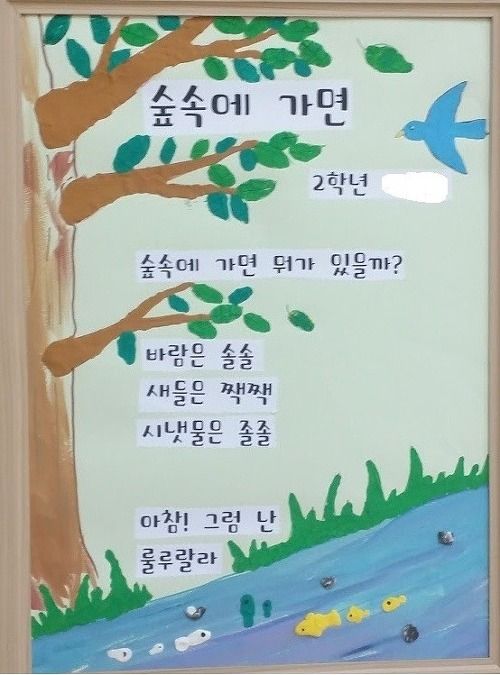 숲속에 가면
2학년
숲속에 가면 뭐가 있을까?
바람은 솔솔
새들은 짹짹
시냇물은 졸졸
아참! 그럼 난
룰루랄라